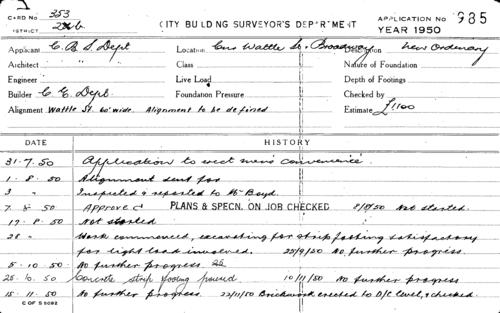 CARD No 353
DISTRICT 2b
CITY BUILDING SURVEYOR'S DEPARTMENT
APPLICATION No 985
YEAR 1950
Applicant C. B. S. Dept Location Cnr Wattle St & Broadway Description New Ordinary
Architect Class Nature of Foundation
Engineer Live Load Depth of Footings
Builder C. E. Dept. Foundation Pressure Checked by
Alignment Wattle St 60' wide. Alignment to be defined Estimate £1100
DATE HISTORY
31.7.50 Application to erect men's convenience.
1.8.50 Alignment sent for
3 " Inspected & reported to Mr Boyd.
7.8.50 Approved PLANS & SPECN. ON JOB CHECKED 8/8/50 Not started.
17.8.50 Not started
28 " Work commenced, excavating for strip footing satisfactory
for light load involved. 25/9/50 No further progress.
5.10.50 No further progress.
25.10.50 Concrete strip footing poured 10/11/50 No further progress
15.11.50 No further progress. 22/11/50 Brickwork erected to D/C level, & checked.
C OF S 5092